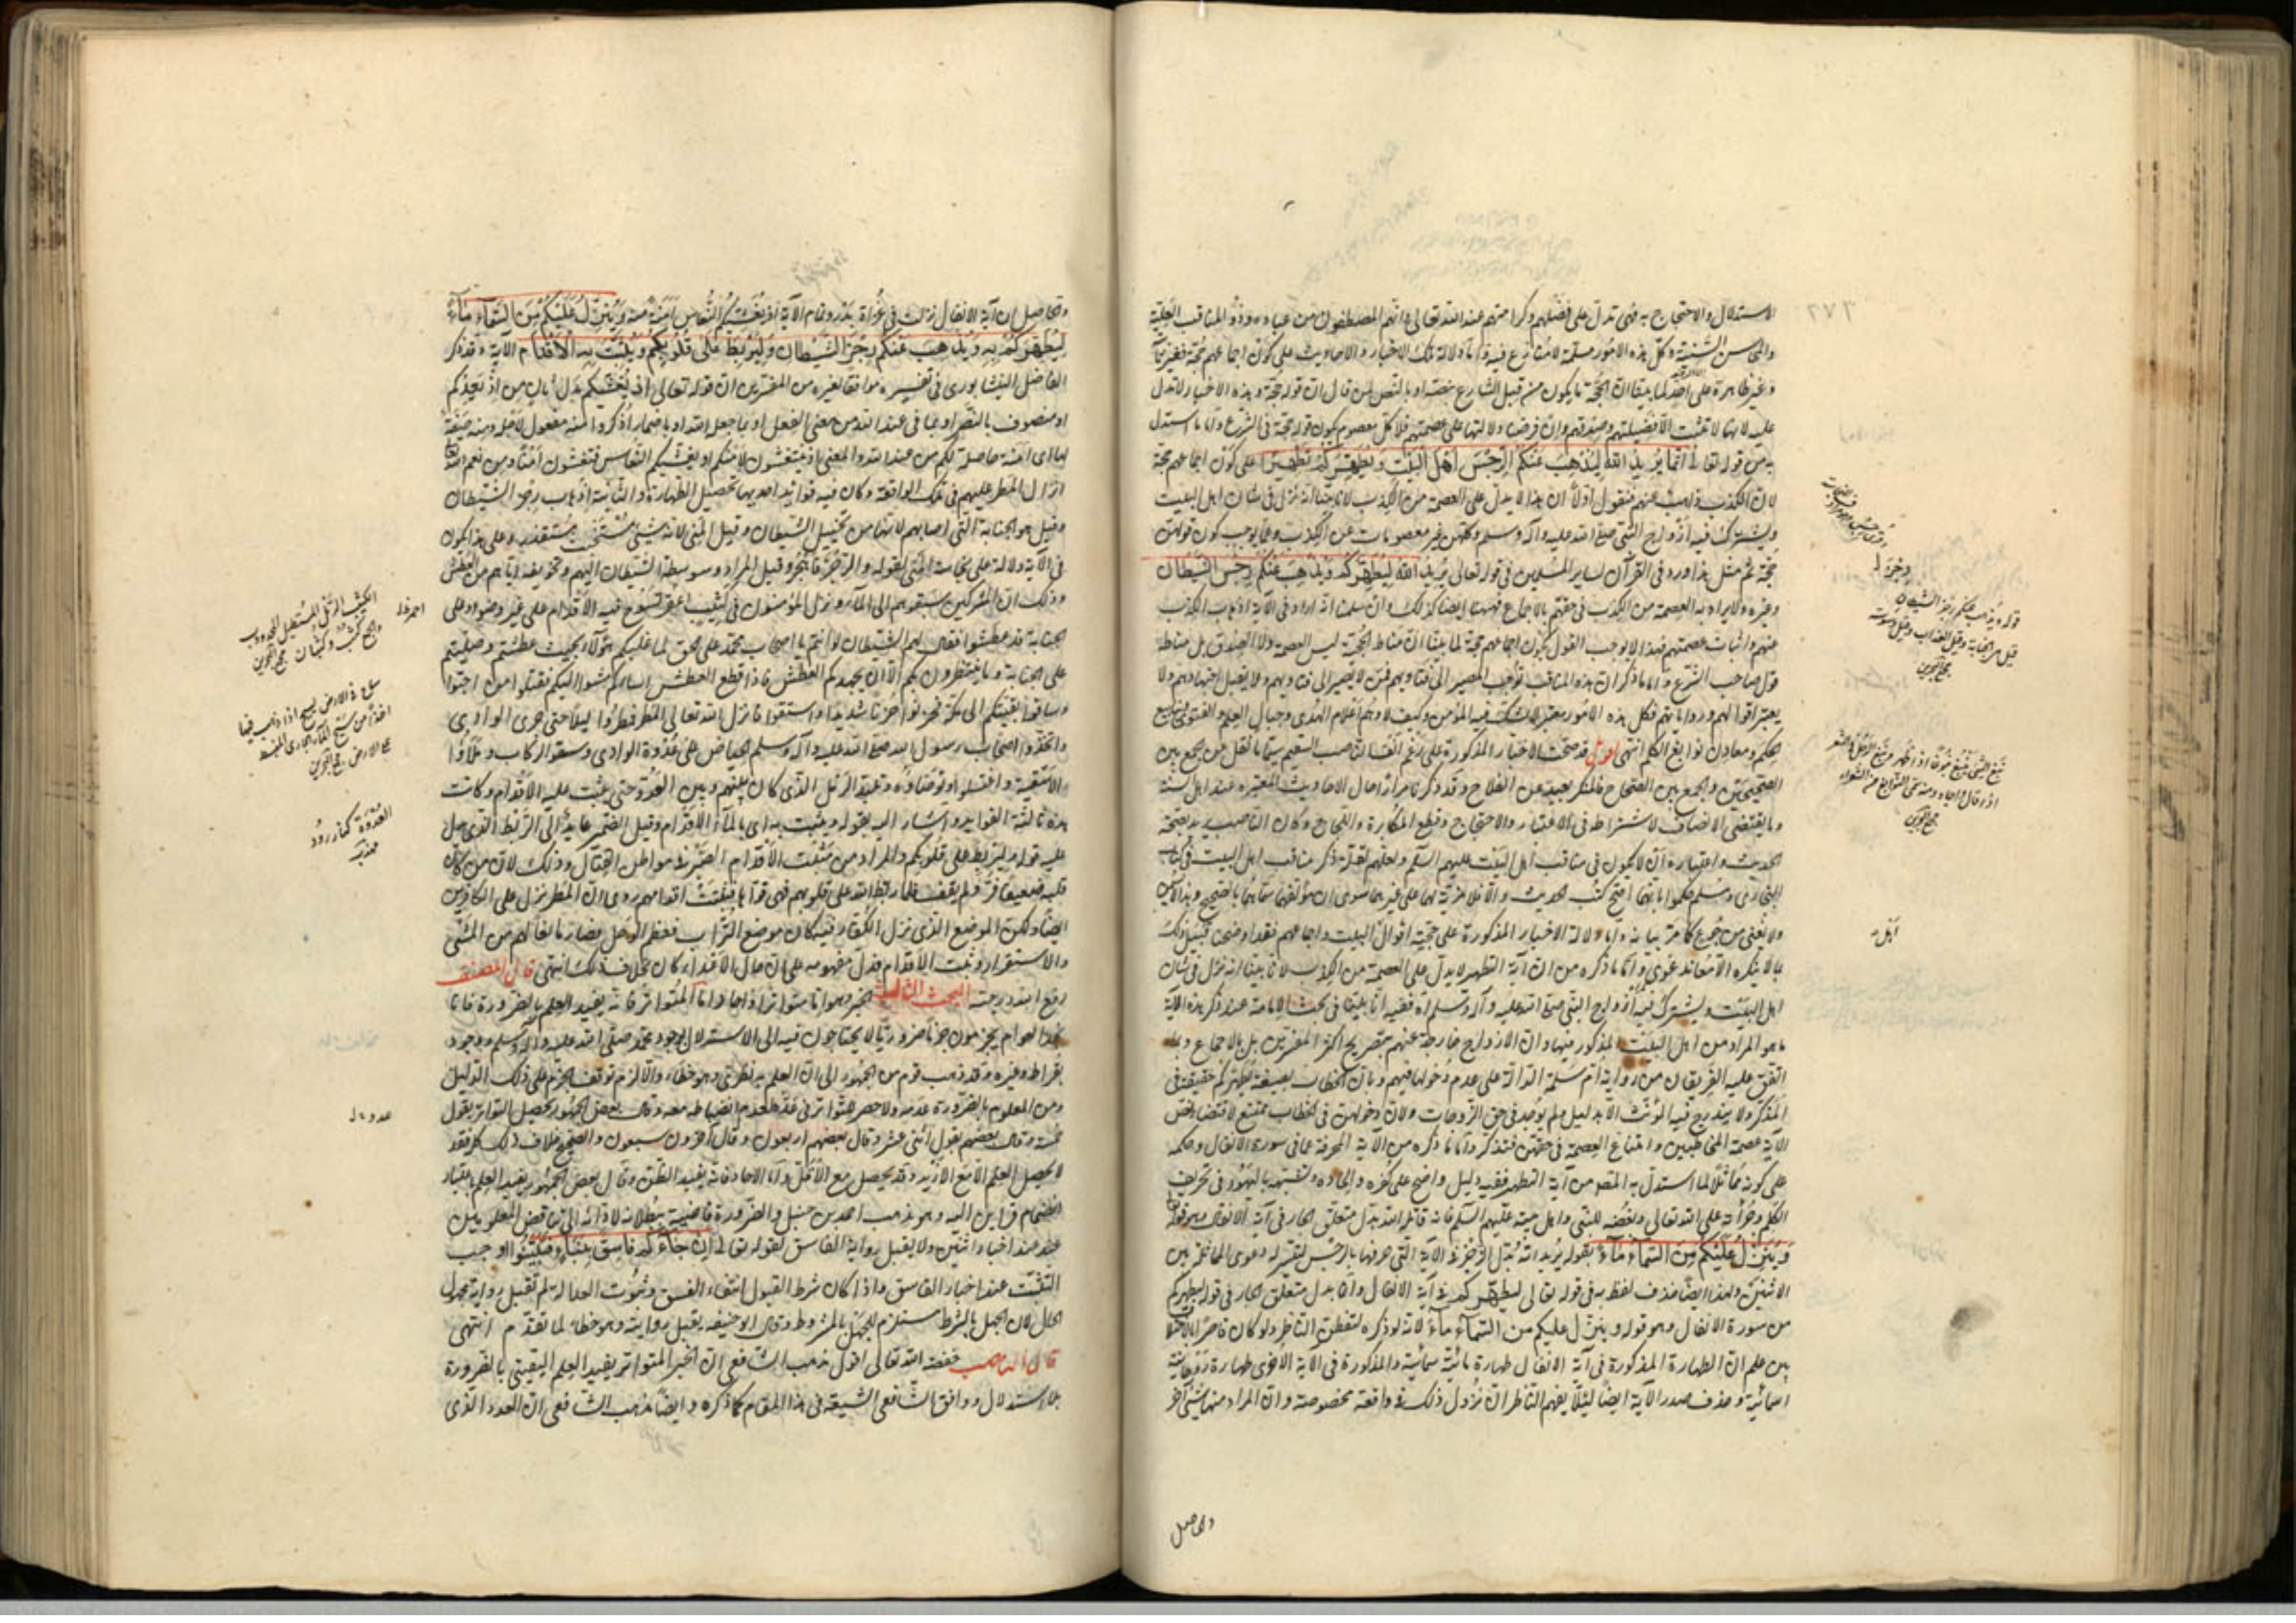 الاستدلال والاحتجاج به فهى تدل على فضلهم وكرامتهم عند الله تعالى وانهم المصطفون من عباده وذوو المناقب العلية
والمحاسن السنية وكل هذه الامور مسلمة لا منازع فيه واما دلالة تلك الاخبار والاحاديث على كون اجماعهم حجة فغير
وغير ظاهرة على احد لما بينا ان الحجة ما يكون من قبل الشارع نصه او بالنص لمن قال ان قوله حجة وهذه الاخبار لا تدل
عليه لانها لا تثبت الا فضيلتهم وصدقهم وان فرضنا دلالتها على عصمتهم فلا كل معصوم يكون قوله حجة فى الشرع واما ما استدل
به من قوله تعالى انما يريد الله ليذهب عنكم الرجس اهل البيت ويطهركم تطهيرا على كون اجماعهم حجة
لان الكذب ذاهب عنهم فنقول اولا ان هذا لا يدل على العصمة من الكذب لانا بينا انه نزل فى شان اهل البيت
ويشترك فيه ازواج النبى صلى الله عليه وآله وسلم وكلهن غير معصومات عن الكذب وما يوجب كون قولهن
حجة ثم مثل هذا ورد فى القرآن لساير المسلمين فى قوله تعالى يريد الله ليطهركم ويذهب عنكم رجس الشيطان
وغيره ولا يراد به العصمة من الكذب فى حقهم بالاجماع فههنا ايضا كذلك وان سلمنا انه اراد فى الآية اذهاب الكذب
عنهم واثبات عصمتهم فهذا لا يوجب القول بكون اجماعهم حجة لما بينا ان مناط الحجية ليس العصمة ولا الصدق بل مناطه
قول صاحب الشرع واما ما ذكر ان هذه المناقب توجب المصير الى فتاويهم فمن لا يصير الى فتاويهم ولا يقبل اجتهادهم ولا
يعتبر اقوالهم ورواياتهم فكل هذه الامور معتبر لا يشك فيه المؤمن وكيف لا وهم اعلام الهدى وجبال العلم والفتوى
الحكم ومعادن نوابغ الكلم انتهى اقول قد صحت الاخبار المذكورة على رغم انف الناصب السقيم سيما ما نقل من الجمع بين
الصحيحين والجمع بين الصحاح فالمنكر بعيد عن الفلاح وقد ذكرنا مرارا حال الاحاديث المعتبرة عند اهل السنة
وما يقتضى الانصاف لاشتراطه فى الاعتبار والاحتجاج وقطع المكابرة واللجاج وكان الناصب يريد بصحة
الحديث واعتباره ان لا يكون فى مناقب اهل البيت عليهم السلم ولعلهم لقلة ذكر مناقب اهل البيت فى كتاب
البخارى ومسلم حكموا بانهما اصح كتب الحديث والا فلا مزية لهما على غيرهما سوى ان مؤلفهما سماهما بالصحيح وهذا لا يسمن
ولا يغنى من جوع كما مر بيانه واما دلالة الاخبار المذكورة على حجية اقوال اهل البيت واجماعهم فقد اوضحن قبيل ذلك
بما لا ينكره الا معاند غوى واما ما ذكره من ان آية التطهير لا يدل على العصمة من الكذب لانا بينا انه نزل فى شان
اهل البيت ويشترك فيه ازواج النبى صلى الله عليه وآله وسلم اه ففيه انا بينا فى بحث الامامة عند ذكر هذه الآية
ما هو المراد من اهل البيت المذكور فيها وان الازواج خارجة عنهم بتصريح اكثر المفسرين بل بالاجماع وبما
اتفق عليه الفريقان من رواية ام سلمة الدالة على عدم دخولها فيهم وبان الخطاب بصيغة يطهركم حقيقة فى
المذكر ولا يندرج فيه المؤنث الا بدليل ولم يوجد فى حق الزوجات ولان دخولهن فى الخطاب ممتنع لاقتضاء نص
الآية عصمة المخاطبين وامتناع العصمة فى حقهن فتذكر واما ما ذكره من الآية المحرفة عما فى سورة الانفال وحكمه
على كونه مماثلا لما استدل به المص من آية التطهير ففيه دليل واضح على كفره والحاده وتشبهه باليهود فى تحريف
الكلم وجرأته على الله تعالى وبغضه للنبى واهل بيته عليهم السلم فانه قاتله الله بدل متعلق الجار فى آية الانفال وهو قوله
وينزل عليكم من السماء ماء بقوله يريد الله بدل الرجز فى الآية التى حرفها بالرجس لتيسر له دعوى المماثلة بين
الاثنين ولهذا ايضا حذف لفظ به فى قوله تعالى ليطهركم به فى آية الانفال وانما بدل متعلق الجار فى قوله ليطهركم
من سورة الانفال وهو قوله وينزل عليكم من السماء ماء لانه لو ذكره لتفطن الناظر ولو كان قاصرا
بين علم ان الطهارة المذكورة فى آية الانفال طهارة مائية سمائية والمذكورة فى الآية الاخرى طهارة روحانية
اسمائية وحذف صدر الآية ايضا لئلا يفهم الناظر ان نزول ذلك فى واقعة مخصوصة وان المراد منها شئ آخر
والحاصل
قوله ويذهب عنكم رجز الشيطان
قيل هى الجنابة وقيل العذاب وقيل وسوسته
مجمع البحرين
نبغ الشئ ينبغ نبوغا اذا ظهر ونبغ الرجل فى الشعر
اذا قال واجاد ومنه سمى النوابغ من الشعراء
مجمع البحرين
اهل
والحاصل ان آية الانفال نزلت فى غزاة بدر وتمام الآية اذ يغشيكم النعاس امنة منه وينزل عليكم من السماء ماء
ليطهركم به ويذهب عنكم رجز الشيطان وليربط على قلوبكم ويثبت به الاقدام الآية وقد ذكر
الفاضل النيشابورى فى تفسيره موافقا لغيره من المفسرين ان قوله تعالى اذ يغشيكم بدل ثان من اذ يعدكم
او منصوب بالنصر او بما فى عند الله من معنى الفعل او بما جعله الله او باضمار اذكر وامنة مفعول لاجله ومنه صفة
لها اى امنة حاصلة لكم من عند الله والمعنى اذ يتغشون لامنكم او يغشيكم النعاس فتغشون امنا ومن نعم الله
انزال المطر عليهم فى تلك الواقعة وكان فيه فوائد احديها تحصيل الطهارة والثانية اذهاب رجز الشيطان
وقيل هو الجنابة التى اصابهم لانها من تخييل الشيطان وقيل المنى لانه شئ مستخبث مستقذر وعلى هذا يكون
فى الآية دلالة على نجاسة المنى لقوله والرجز فاهجر وقيل المراد وسوسة الشيطان اليهم وتخويفه اياهم من العطش
وذلك ان المشركين سبقوهم الى الماء ونزل المؤمنون فى كثيب اعفر تسوخ فيه الاقدام على غير وضوء وعلى
الجنابة قد عطشوا فقال لهم الشيطان لو انتم يا اصحاب محمد على الحق لما غلبكم هؤلاء بحيث عطشتم وصليتم
على الجنابة وما ينتظرون بكم الا ان يجهدكم العطش فاذا قطع العطش اعناقكم مشوا اليكم فقتلوا من احبوا
وساقوا بقيتكم الى مكة فحزنوا حزنا شديدا واستقوا فانزل الله تعالى المطر فمطروا ليلا حتى جرى الوادى
واتخذوا اصحاب رسول الله صلى الله عليه وآله وسلم الحياض على عدوة الوادى وسقوا الركاب وملاؤا
الاسقية واغتسلوا وتوضاؤا وتلبد الرمل الذى كان بينهم وبين العدو حتى يثبت عليه الاقدام وكانت
هذه ثالثة الفوائد واشار اليه بقوله ويثبت به اى بالماء الاقدام وقيل الضمير عايد الى الربط الذى دل
عليه قوله وليربط على قلوبكم والمراد من تثبيت الاقدام الصبر فى مواطن القتال وذلك لان من كان
قلبه ضعيفا فر ولم يقف فلما ربط الله على قلوبهم فهى قواها فيثبت اقدامهم روى ان المطر نزل على الكافرين
ايضا ولكن الموضع الذى نزل الكفار فيه كان موضع التراب فعظم الوحل فصار مانعا لهم من المشى
والاستقرار ويثبت الاقدام فدل مفهومه على ان حال الاعداء كان بخلاف ذلك انتهى قال المصنف
رفع الله درجته البحث الثالث الخبر وهو اما متواتر او آحاد واما المتواتر فانه يفيد العلم بالضرورة فانا
نجد العوام يجزمون جزما ضروريا لا يحتاجون فيه الى الاستدلال بوجود محمد صلى الله عليه وآله وسلم ووجود
بقراط وغيره وقد ذهب قوم من الجمهور الى ان العلم به نظرى وهو خطاء والا لزم توقف الجزم على ذلك الدليل
ومن المعلوم بالضرورة عدمه ولا حصر للتواتر فى عدد لعدم انضباطه معه وقال بعض الجمهور يحصل التواتر بقول
خمسة وقال بعضهم بقول اثنى عشر وقال بعضهم اربعون وقال آخرون سبعون والصحيح خلاف ذلك كله فقد
لا يحصل العلم الا مع الازيد وقد يحصل مع الاقل واما الآحاد فانه يفيد الظن وقال بعض الجمهور يفيد العلم باعتبار
انضمام قراين اليه وهو مذهب احمد بن حنبل والضرورة قاضية ببطلانه لادائه الى تناقض المعلومين
عند اخبار اثنين ولا يقبل رواية الفاسق لقوله تعالى ان جاءكم فاسق بنبأ فتبينوا اوجب
التثبت عند اخبار الفاسق واذا كان شرط القبول انتفاء الفسق وثبوت العدالة لم تقبل رواية مجهول
الحال لان الجهل بالشرط مستلزم للجهل بالمشروط وقال ابو حنيفة يقبل روايته وهو خطاء لما تقدم انتهى
قال الناصب خفضه الله تعالى اقول مذهب الشافعى ان الخبر المتواتر يفيد العلم اليقينى بالضرورة
بلا استدلال ووافق الشافعى الشيعة فى هذا المقام كما ذكره وايضا مذهب الشافعى ان العدد الذى
الكثيب الرمل المستطيل المحدودب
والجمع كثب وكثبان مجمع البحرين
مجمع البحرين
العدوة كنار رود
مهذب